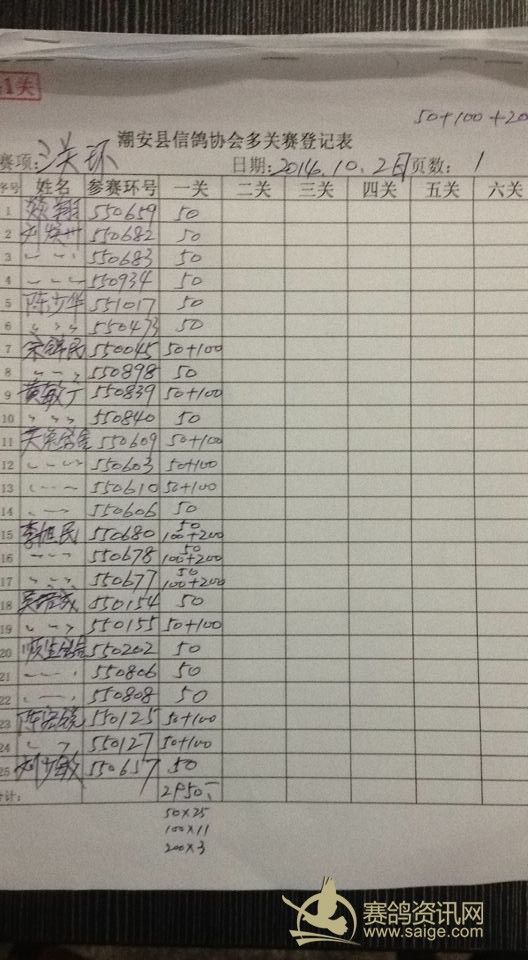 1关
50+100+20
潮安县信鸽协会多关赛登记表
赛项:三关环 日期:2014.10.2日 页数:1
序号 姓名 参赛环号 一关 二关 三关 四关 五关 六关
1 550659 50
2 550682 50
3 〃 〃 〃 550683 50
4 〃 〃 〃 550934 50
5 陈少华 551017 50
6 〃 〃 〃 550473 50
7 宋锦民 550045 50+100
8 〃 〃 〃 550898 50
9 黄敏 550839 50+100
10 〃 〃 〃 550840 50
11 550609 50+100
12 〃 〃 〃 550603 50+100
13 〃 〃 〃 550610 50+100
14 〃 〃 550606 50
15 李旭民 550680 50 100+200
16 〃 〃 〃 550678 50 100+200
17 〃 〃 〃 550677 50 100+200
18 550154 50
19 〃 〃 〃 550155 50+100
20 550202 50
21 〃 〃 〃 550806 50
22 〃 〃 〃 550808 50
23 550125 50+100
24 〃 〃 550127 50+100
25 刘少敏 550657 50
合计: 2950
50×25
100×11
200×3
赛鸽资讯网
www.saige.com